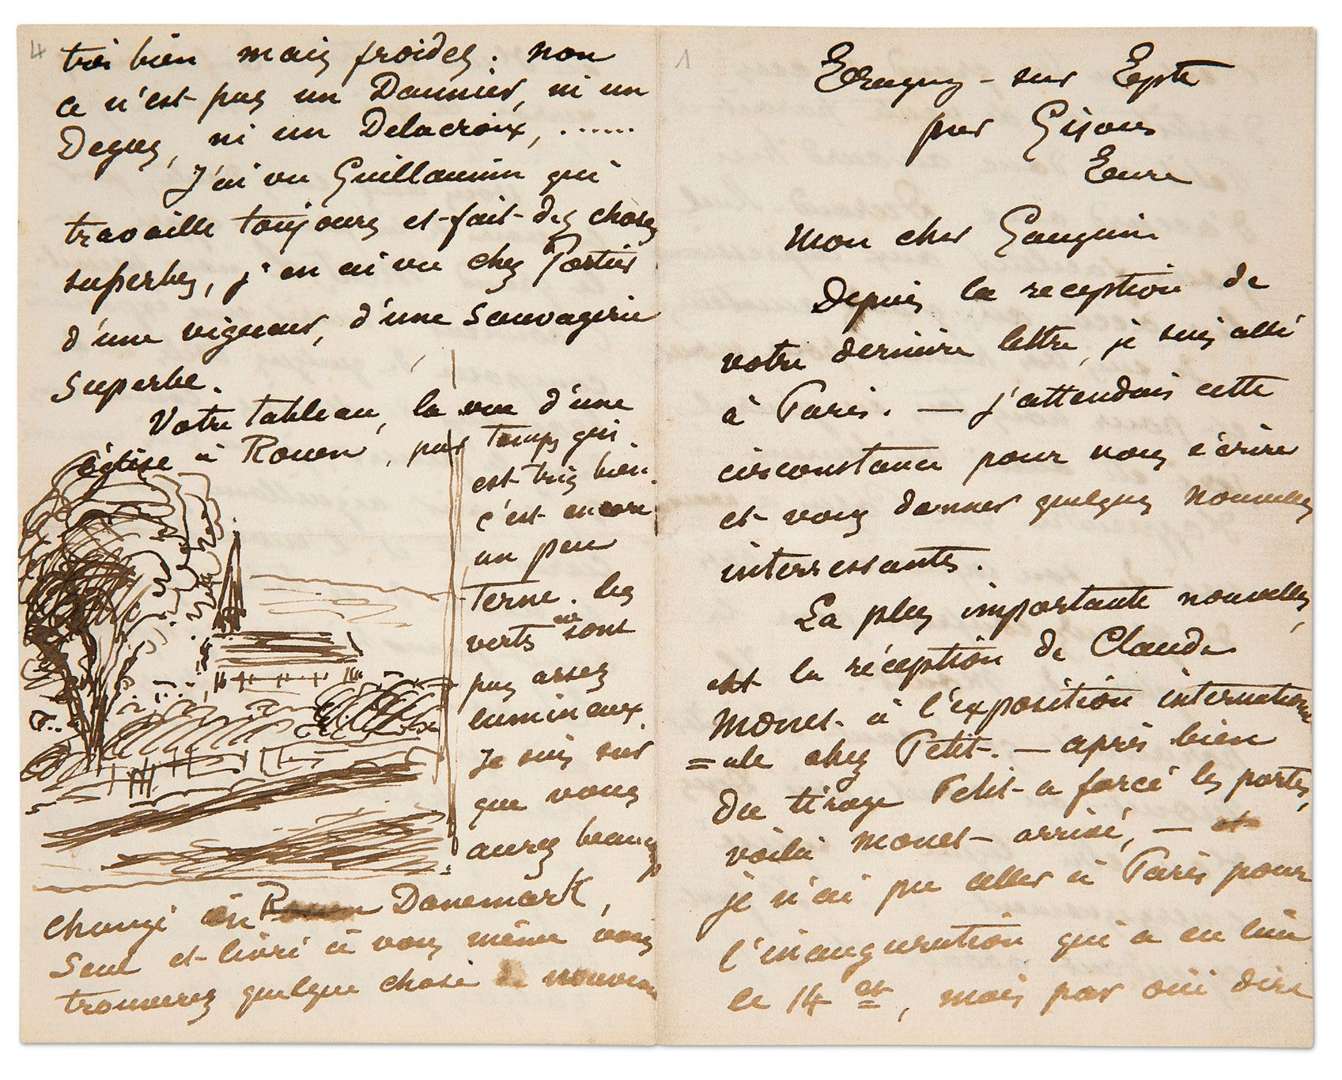 4
très bien mais froides. non
ce n'est pas un Daumier, ni un
Degas, ni un Delacroix, ......
J'ai vu Guillaumin qui
travaille toujours et fait des choses
superbes, j'en ai vu chez Portier
d'une vigueur, d'une sauvagerie
superbe.
Votre tableau, la vue d'une
église à Rouen, par temps gris
est très bien.
c'est encore
un peu
terne. les
verts ne sont
pas assez
lumineux.
Je suis sûr
que vous
aurez beaucp
changé en Danemark,
Seul et livré à vous même vous
trouverez quelque chose de nouveau
1
Eragny - sur Epte
par Gisors
Eure
Mon cher Gauguin
Depuis la reception de
votre dernière lettre, je suis allé
à Paris. — j'attendais cette
circonstance pour vous écrire
et vous donner quelques nouvelles
interressantes.
La plus importante nouvelle,
est la réception de Claude
Monet à l'exposition internation
=ale chez Petit. — après bien
du tirage Petit a forcé les portes,
voilà Monet arrivé, —
je n'ai pu aller à Paris pour
l'inauguration qui a eu lieu
le 14 et, mais par ouï dire